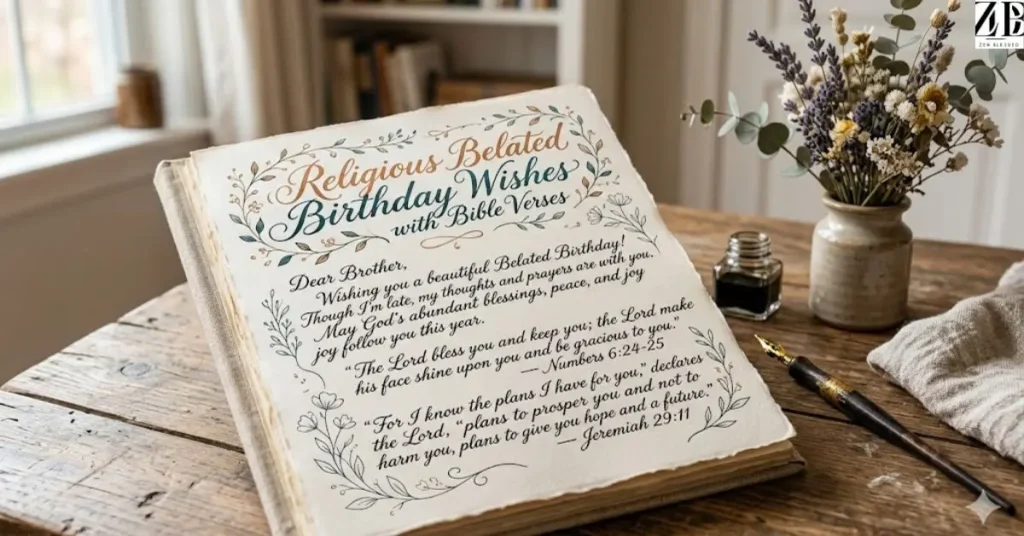 Religious Belated
Birthday Wishes
with Bible Verses
Dear Brother,
Wishing you a beautiful Belated Birthday!
Though I'm late, my thoughts and prayers are with you.
May God's abundant blessings, peace, and joy
joy follow you this year.
"The Lord bless you and keep you; the Lord make
his face shine upon you and be gracious to you."
— Numbers 6:24-25
"For I know the plans I have for you," declares
the Lord, "plans to prosper you and not to
harm you, plans to give you hope and a future."
— Jeremiah 29:11
ZB
ZEN BLESSED